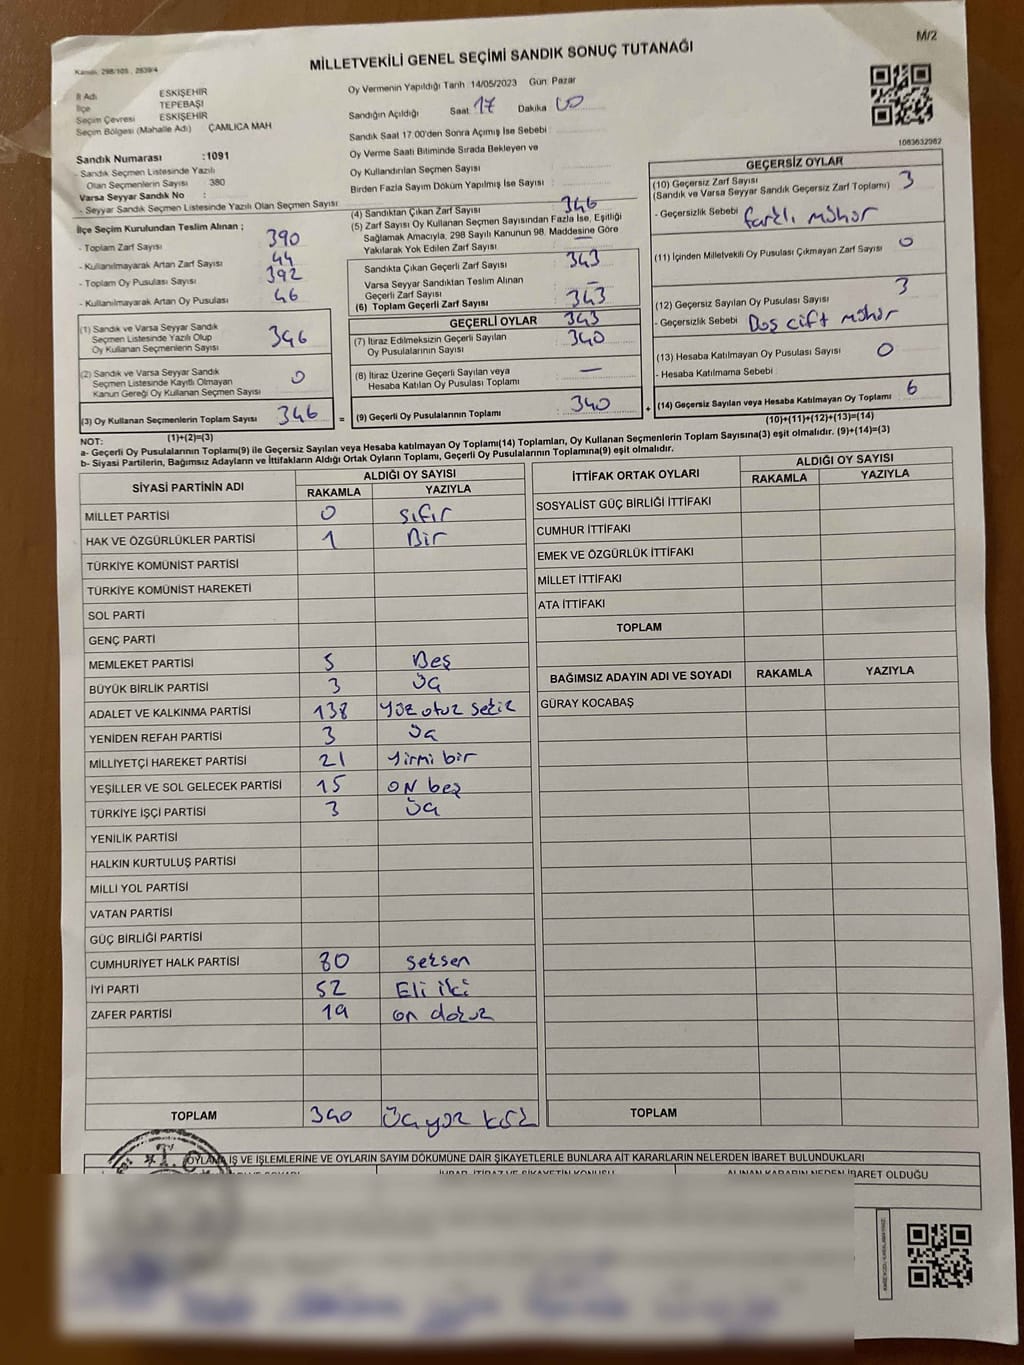 M/2
MİLLETVEKİLİ GENEL SEÇİMİ SANDIK SONUÇ TUTANAĞI
Kanun: 298/105 , 2839/4
İl Adı ESKİŞEHİR
İlçe TEPEBAŞI
Seçim Çevresi ESKİŞEHİR
Seçim Bölgesi (Mahalle Adı) ÇAMLICA MAH
Sandık Numarası :1091
- Sandık Seçmen Listesinde Yazılı
Olan Seçmenlerin Sayısı 380
Varsa Seyyar Sandık No :
- Seyyar Sandık Seçmen Listesinde Yazılı Olan Seçmen Sayısı
İlçe Seçim Kurulundan Teslim Alınan ;
- Toplam Zarf Sayısı 390
- Kullanılmayarak Artan Zarf Sayısı 44
- Toplam Oy Pusulası Sayısı 392
- Kullanılmayarak Artan Oy Pusulası 46
(1) Sandık ve Varsa Seyyar Sandık
Seçmen Listesinde Yazılı Olup
Oy Kullanan Seçmenlerin Sayısı 346
(2) Sandık ve Varsa Seyyar Sandık
Seçmen Listesinde Kayıtlı Olmayan
Kanun Gereği Oy Kullanan Seçmen Sayısı 0
(3) Oy Kullanan Seçmenlerin Toplam Sayısı 346 =
(1)+(2)=(3)
Oy Vermenin Yapıldığı Tarih 14/05/2023 Gün: Pazar
Sandığın Açıldığı Saat 17 Dakika 00
Sandık Saat 17.00'den Sonra Açımış İse Sebebi :
Oy Verme Saati Bitiminde Sırada Bekleyen ve
Oy Kullandırılan Seçmen Sayısı :
Birden Fazla Sayım Döküm Yapılmış İse Sayısı :
(4) Sandıktan Çıkan Zarf Sayısı 346
(5) Zarf Sayısı Oy Kullanan Seçmen Sayısından Fazla İse, Eşitliği
Sağlamak Amacıyla, 298 Sayılı Kanunun 98. Maddesine Göre
Yakılarak Yok Edilen Zarf Sayısı —
Sandıkta Çıkan Geçerli Zarf Sayısı 343
Varsa Seyyar Sandıktan Teslim Alınan
Geçerli Zarf Sayısı —
(6) Toplam Geçerli Zarf Sayısı 343
GEÇERLİ OYLAR 343
(7) İtiraz Edilmeksizin Geçerli Sayılan
Oy Pusulalarının Sayısı 340
(8) İtiraz Üzerine Geçerli Sayılan veya
Hesaba Katılan Oy Pusulası Toplamı —
(9) Geçerli Oy Pusulalarının Toplamı 340 +
1083632982
GEÇERSİZ OYLAR
(10) Geçersiz Zarf Sayısı 3
(Sandık ve Varsa Seyyar Sandık Geçersiz Zarf Toplamı)
- Geçersizlik Sebebi farklı mühür
(11) İçinden Milletvekili Oy Pusulası Çıkmayan Zarf Sayısı 0
(12) Geçersiz Sayılan Oy Pusulası Sayısı 3
- Geçersizlik Sebebi Boş çift mühür
(13) Hesaba Katılmayan Oy Pusulası Sayısı 0
- Hesaba Katılmama Sebebi :
(14) Geçersiz Sayılan veya Hesaba Katılmayan Oy Toplamı 6
(10)+(11)+(12)+(13)=(14)
NOT:
a- Geçerli Oy Pusulalarının Toplamı(9) ile Geçersiz Sayılan veya Hesaba katılmayan Oy Toplamı(14) Toplamları, Oy Kullanan Seçmenlerin Toplam Sayısına(3) eşit olmalıdır. (9)+(14)=(3)
b- Siyasi Partilerin, Bağımsız Adayların ve İttifakların Aldığı Ortak Oyların Toplamı, Geçerli Oy Pusulalarının Toplamına(9) eşit olmalıdır.
SİYASİ PARTİNİN ADI ALDIĞI OY SAYISI
RAKAMLA YAZIYLA
MİLLET PARTİSİ 0 sıfır
HAK VE ÖZGÜRLÜKLER PARTİSİ 1 Bir
TÜRKİYE KOMÜNİST PARTİSİ
TÜRKİYE KOMÜNİST HAREKETİ
SOL PARTİ
GENÇ PARTİ
MEMLEKET PARTİSİ 5 Beş
BÜYÜK BİRLİK PARTİSİ 3 Üç
ADALET VE KALKINMA PARTİSİ 138 Yüz otuz sekiz
YENİDEN REFAH PARTİSİ 3 Üç
MİLLİYETÇİ HAREKET PARTİSİ 21 Yirmi bir
YEŞİLLER VE SOL GELECEK PARTİSİ 15 ON beş
TÜRKİYE İŞÇİ PARTİSİ 3 Üç
YENİLİK PARTİSİ
HALKIN KURTULUŞ PARTİSİ
MİLLİ YOL PARTİSİ
VATAN PARTİSİ
GÜÇ BİRLİĞİ PARTİSİ
CUMHURİYET HALK PARTİSİ 80 seksen
İYİ PARTİ 52 Eli iki
ZAFER PARTİSİ 19 on dokuz
TOPLAM 340 Üçyüz kırk
İTTİFAK ORTAK OYLARI ALDIĞI OY SAYISI
RAKAMLA YAZIYLA
SOSYALİST GÜÇ BİRLİĞİ İTTİFAKI
CUMHUR İTTİFAKI
EMEK VE ÖZGÜRLÜK İTTİFAKI
MİLLET İTTİFAKI
ATA İTTİFAKI
TOPLAM
BAĞIMSIZ ADAYIN ADI VE SOYADI RAKAMLA YAZIYLA
GÜRAY KOCABAŞ
TOPLAM
OYLAMA İŞ VE İŞLEMLERİNE VE OYLARIN SAYIM DÖKÜMÜNE DAİR ŞİKAYETLERLE BUNLARA AİT KARARLARIN NELERDEN İBARET BULUNDUKLARI
İHBAR, İTİRAZ VE ŞİKAYETİN KONUSU ALINAN KARARIN NEDEN İBARET OLDUĞU
T.C.